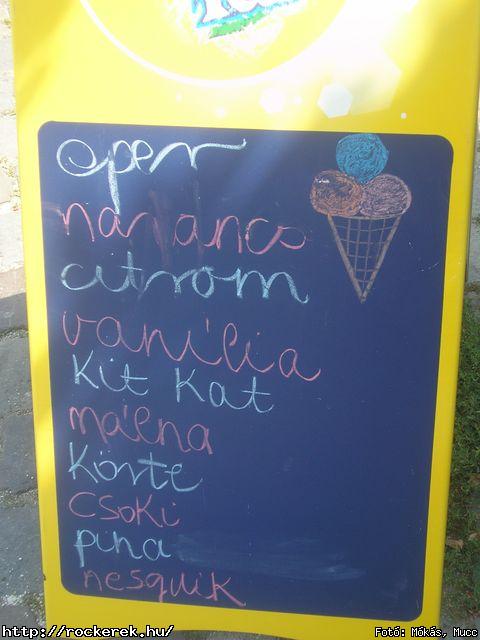 eper
narancs
citrom
vanília
kit kat
málna
körte
csoki
puna
nesquik
http://rockerek.hu/
Fotó: Mókás, Mucc